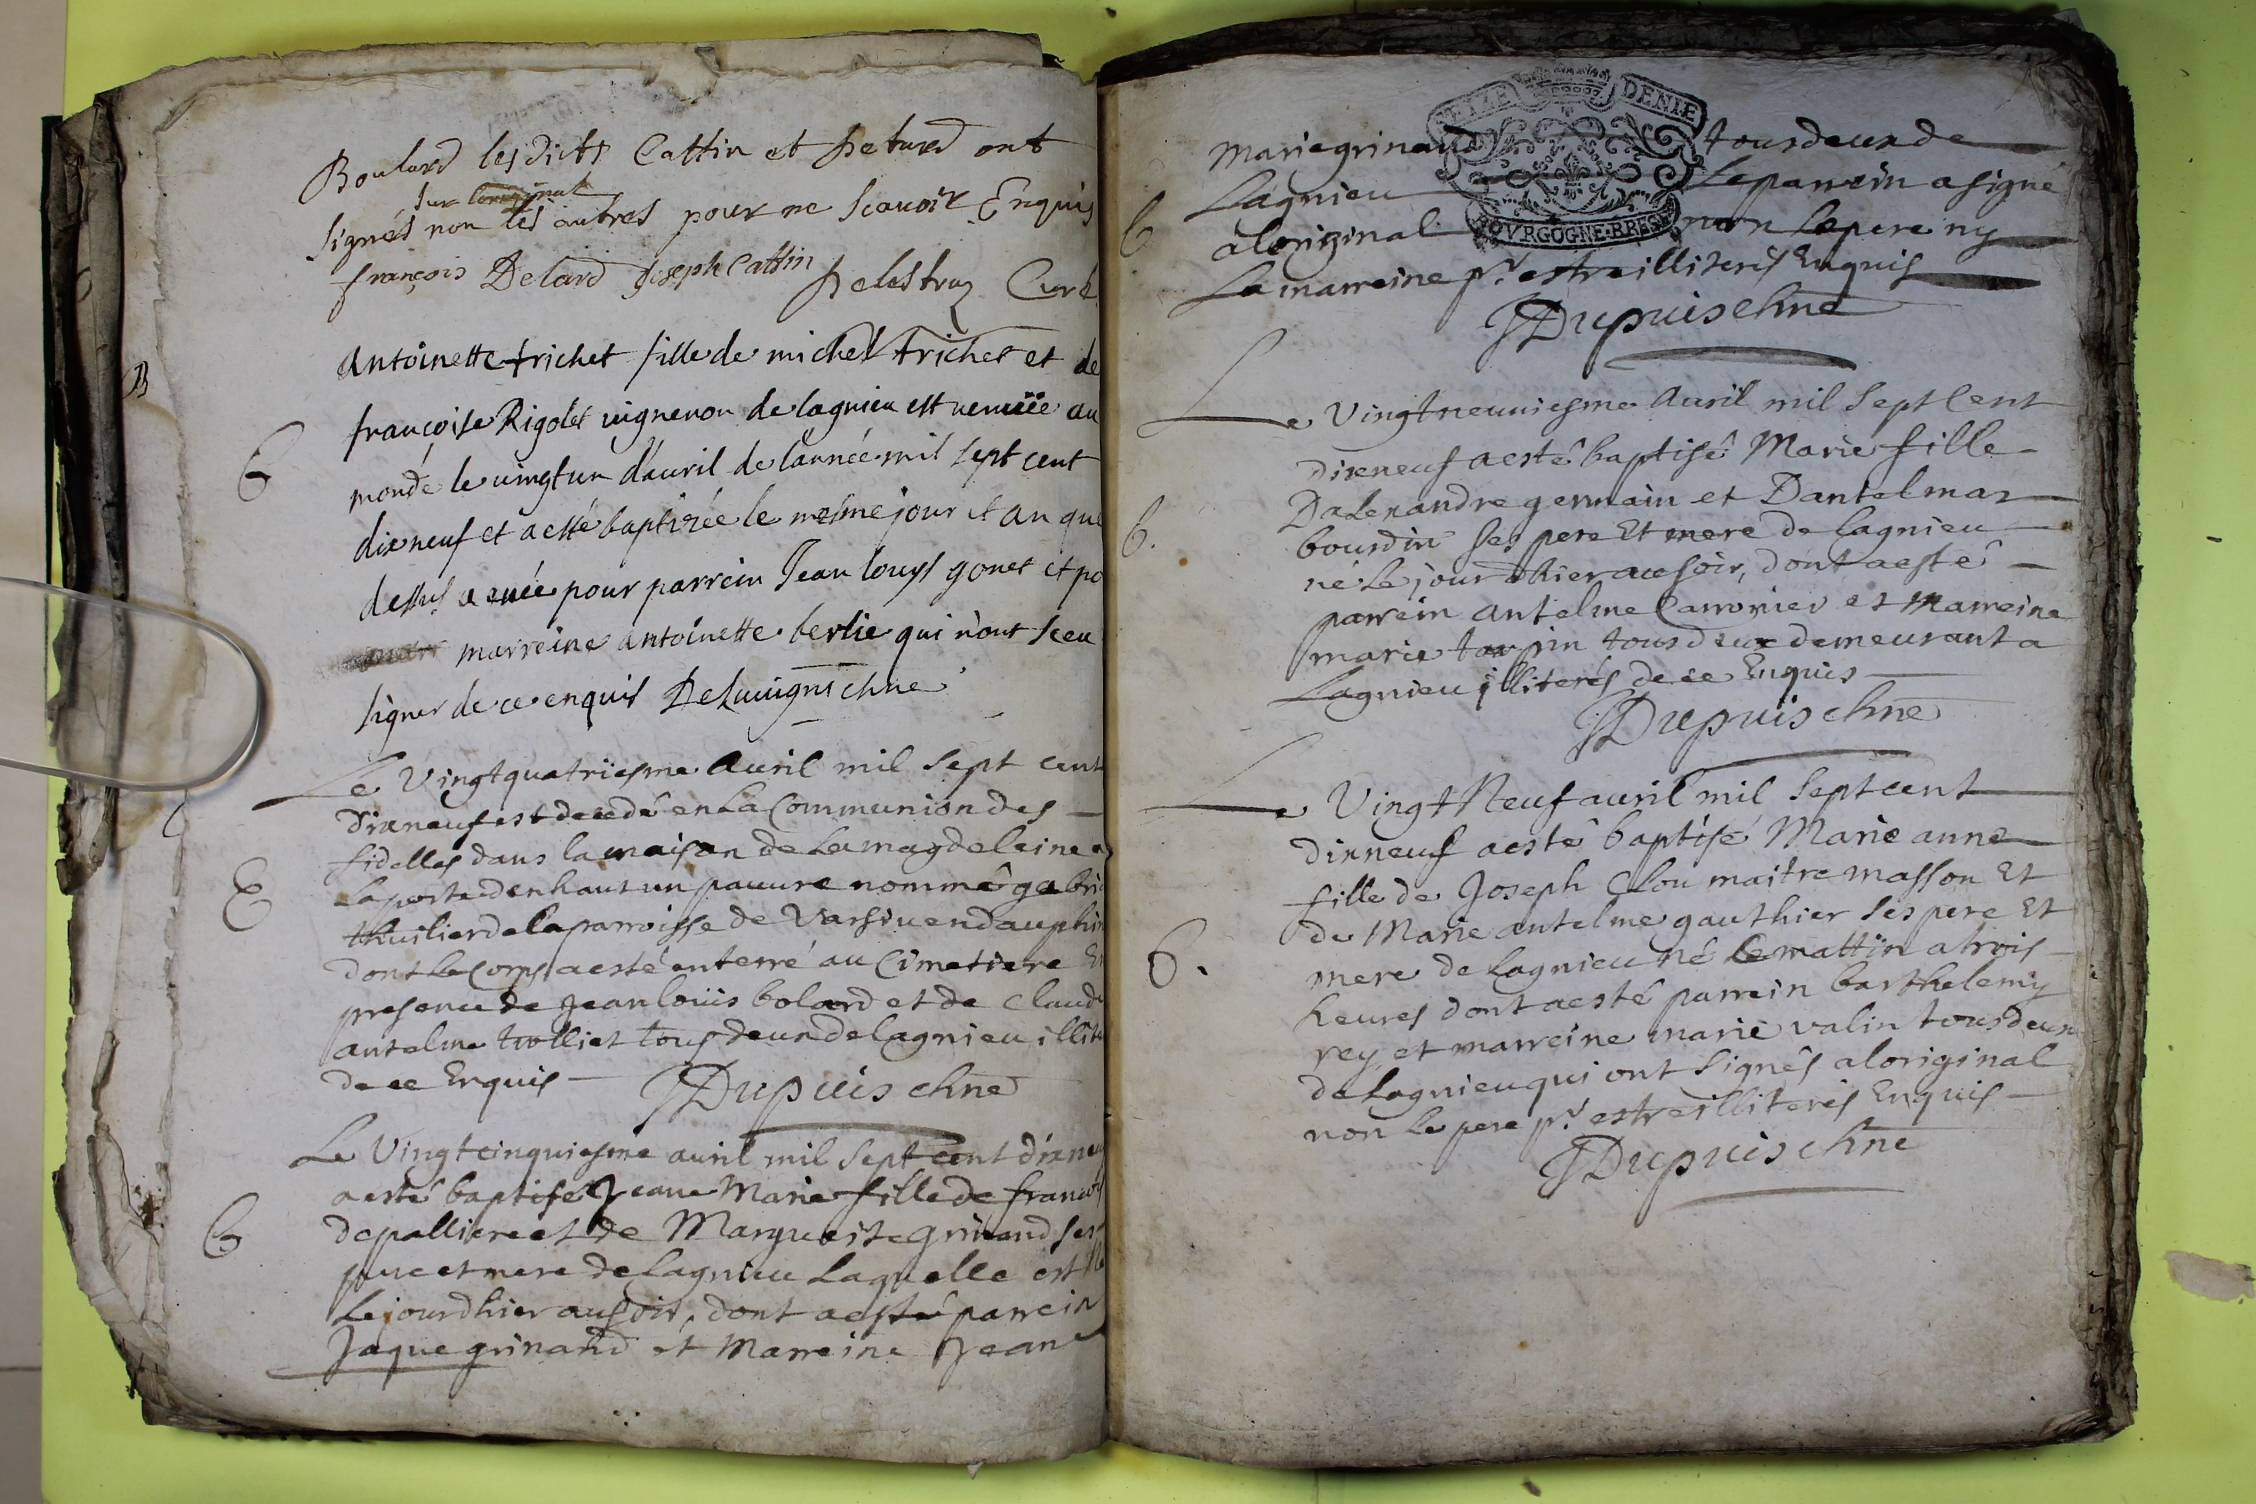 Boulard lesdicts Cattin et Deturd ont
sur loriginal
signés non les autres pour ne scavoir Enquis
françois Delard Joseph Cattin
Delestraz Curé
B
Antoinette trichet fille de michel trichet et de
françoise Rigolet vigneron de lagnieu est venuëe au
B
monde le vingt un d'avril de l'année mil sept cent
dixneuf et a esté baptizée le mesme jour et an que
dessus a euée pour parrein Jean louys gonet et po
marreine antoinette berlie qui n'ont sceu
signer de ce enquis Delauigne chne
Le Vingtquatriesme Auril mil sept cent
dixneuf est decedé en La Communion des
fidelles dans la maison de Lamagdeleine a
E
La porte denhaut un pauure nommé gabri
thuilier de la parroisse de Varsiu en dauphin
dont Le Corps a esté enterré au Cimetiere En
presence de Jean louis bolard et de Claude
antelme trolliet tous deux de lagnieu illite
de ce Enquis JDupuis chne
Le Vingtcinquiesme auril mil sept cent dixneu
a esté baptisé Jeane Marie fille de francois
B
depalliere et de Marguerite grinand ses
pere et mere de Lagnieu Laquelle est né
Le jourdhier au soir, dont a esté parrein
Jaque grinand et Marreine Jeane
TREIZE DENIE
marie grinand tous deux de
Lagnieu Le parrein a signé
B
a loriginal non le pere ny
BOVRGOGNE. BRESSE
La marreine pr. estre illiterés Enquis
JDupuis chne
Le Vingtneuuiesme Auril mil sept Cent
dixneuf a esté baptisé Marie fille
Dalexandre germain et Dantelmaz
B.
bourdin ses pere Et mere de Lagnieu
né Le jour dhier au soir, dont a esté
parrein antelme Carronier et Marreine
marie tarpin tous deux demeurant a
Lagnieu illiterés de ce Enquis
JDupuis chne
Le Vingt Neuf auril mil Septcent
dixneuf a esté baptisé Marie anne
fille de Joseph Clou maitre masson Et
de Marie antelme gauthier ses pere Et
B.
mere de Lagnieu né Le mattin a trois
heures dont a esté parrein barthelemy
rey et marreine marie valin tous deux
de Lagnieu qui ont signés a loriginal
non Le pere pr. estre illiterés Enquis
JDupuis chne